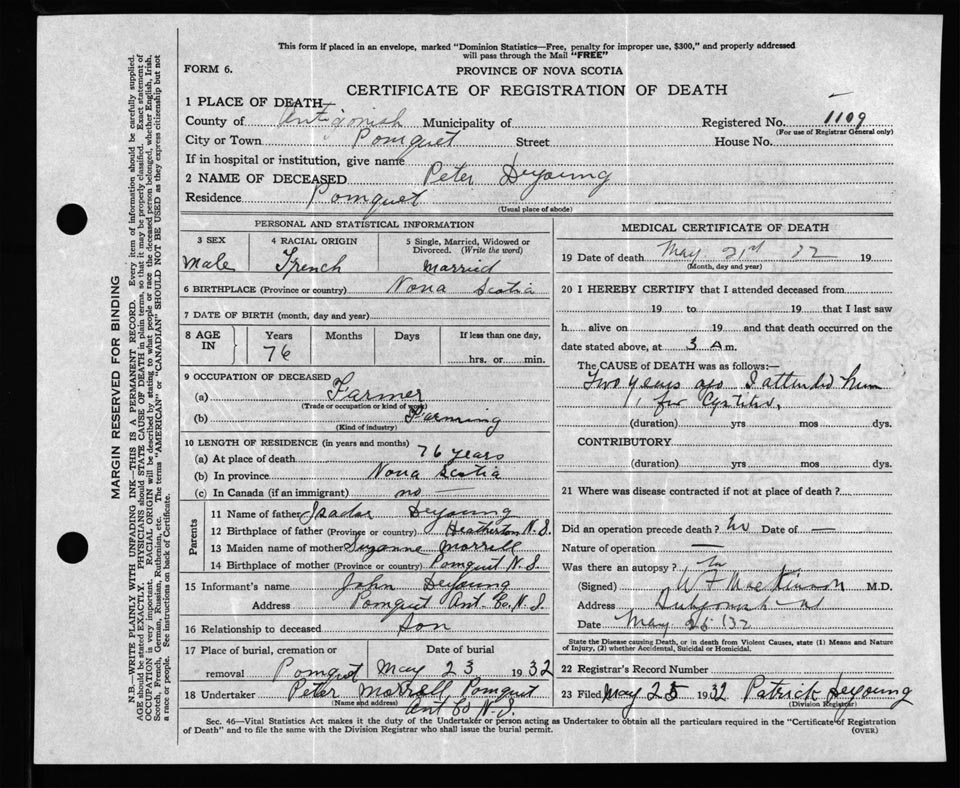 This form if placed in an envelope, marked "Dominion Statistics—Free, penalty for improper use, $300," and properly addressed
will pass through the Mail "FREE"
FORM 6.
PROVINCE OF NOVA SCOTIA
CERTIFICATE OF REGISTRATION OF DEATH
1 PLACE OF DEATH—
County of Antigonish Municipality of Registered No. 1109
(For use of Registrar General only)
City or Town Pomquet Street House No.
If in hospital or institution, give name
2 NAME OF DECEASED Peter DeYoung
Residence Pomquet
(Usual place of abode)
PERSONAL AND STATISTICAL INFORMATION
3 SEX 4 RACIAL ORIGIN 5 Single, Married, Widowed or
Divorced. (Write the word)
Male French Married
6 BIRTHPLACE (Province or country) Nova Scotia
7 DATE OF BIRTH (month, day and year)
8 AGE IN Years Months Days If less than one day,
76 hrs. or min.
9 OCCUPATION OF DECEASED
(a) Farmer
(Trade or occupation or kind of work)
(b) Farming
(Kind of industry)
10 LENGTH OF RESIDENCE (in years and months)
(a) At place of death 76 years
(b) In province Nova Scotia
(c) In Canada (if an immigrant) no —
Parents
11 Name of father Isador DeYoung
12 Birthplace of father (Province or country) Heatherton N.S.
13 Maiden name of mother Suzanne Morrell
14 Birthplace of mother (Province or country) Pomquet N.S.
15 Informant's name John DeYoung
Address Pomquet Ant. Co. N.S.
16 Relationship to deceased Son
17 Place of burial, cremation or removal Date of burial
Pomquet May 23 1932
18 Undertaker Peter Morrell, Pomquet
(Name and address)
Ant Co N.S.
MEDICAL CERTIFICATE OF DEATH
19 Date of death May 21st 32 19
(Month, day and year)
20 I HEREBY CERTIFY that I attended deceased from
19 to 19 that I last saw
h alive on 19 and that death occurred on the
date stated above, at 3 A m.
The CAUSE of DEATH was as follows:—
Two years ago I attended him
for Cystitis.
(duration) yrs mos dys.
CONTRIBUTORY
(duration) yrs mos dys.
21 Where was disease contracted if not at place of death?
Did an operation precede death? No Date of —
Nature of operation —
Was there an autopsy? No
(Signed) W F MacKinnon M.D.
Address Antigonish NS
Date May 25 /32
State the Disease causing Death, or in death from Violent Causes, state (1) Means and Nature
of Injury, (2) whether Accidental, Suicidal or Homicidal.
22 Registrar's Record Number
23 Filed May 25 1932 Patrick DeYoung
(Division Registrar)
Sec. 46—Vital Statistics Act makes it the duty of the Undertaker or person acting as Undertaker to obtain all the particulars required in the "Certificate of Registration
of Death" and to file the same with the Division Registrar who shall issue the burial permit.
(OVER)
MARGIN RESERVED FOR BINDING
N.B.—WRITE PLAINLY WITH UNFADING INK—THIS IS A PERMANENT RECORD. Every item of information should be carefully supplied.
AGE should be stated EXACTLY. PHYSICIANS should STATE CAUSE OF DEATH in plain terms, so that it may be properly classified. Exact statement of
OCCUPATION is very important. RACIAL ORIGIN will be described by stating to what people or race the deceased person belonged, whether English, Irish,
Scotch, French, German, Russian, Ruthenian, etc. The terms "AMERICAN" or "CANADIAN" SHOULD NOT BE USED as they express citizenship but not
a race or people. See instructions on back of Certificate.